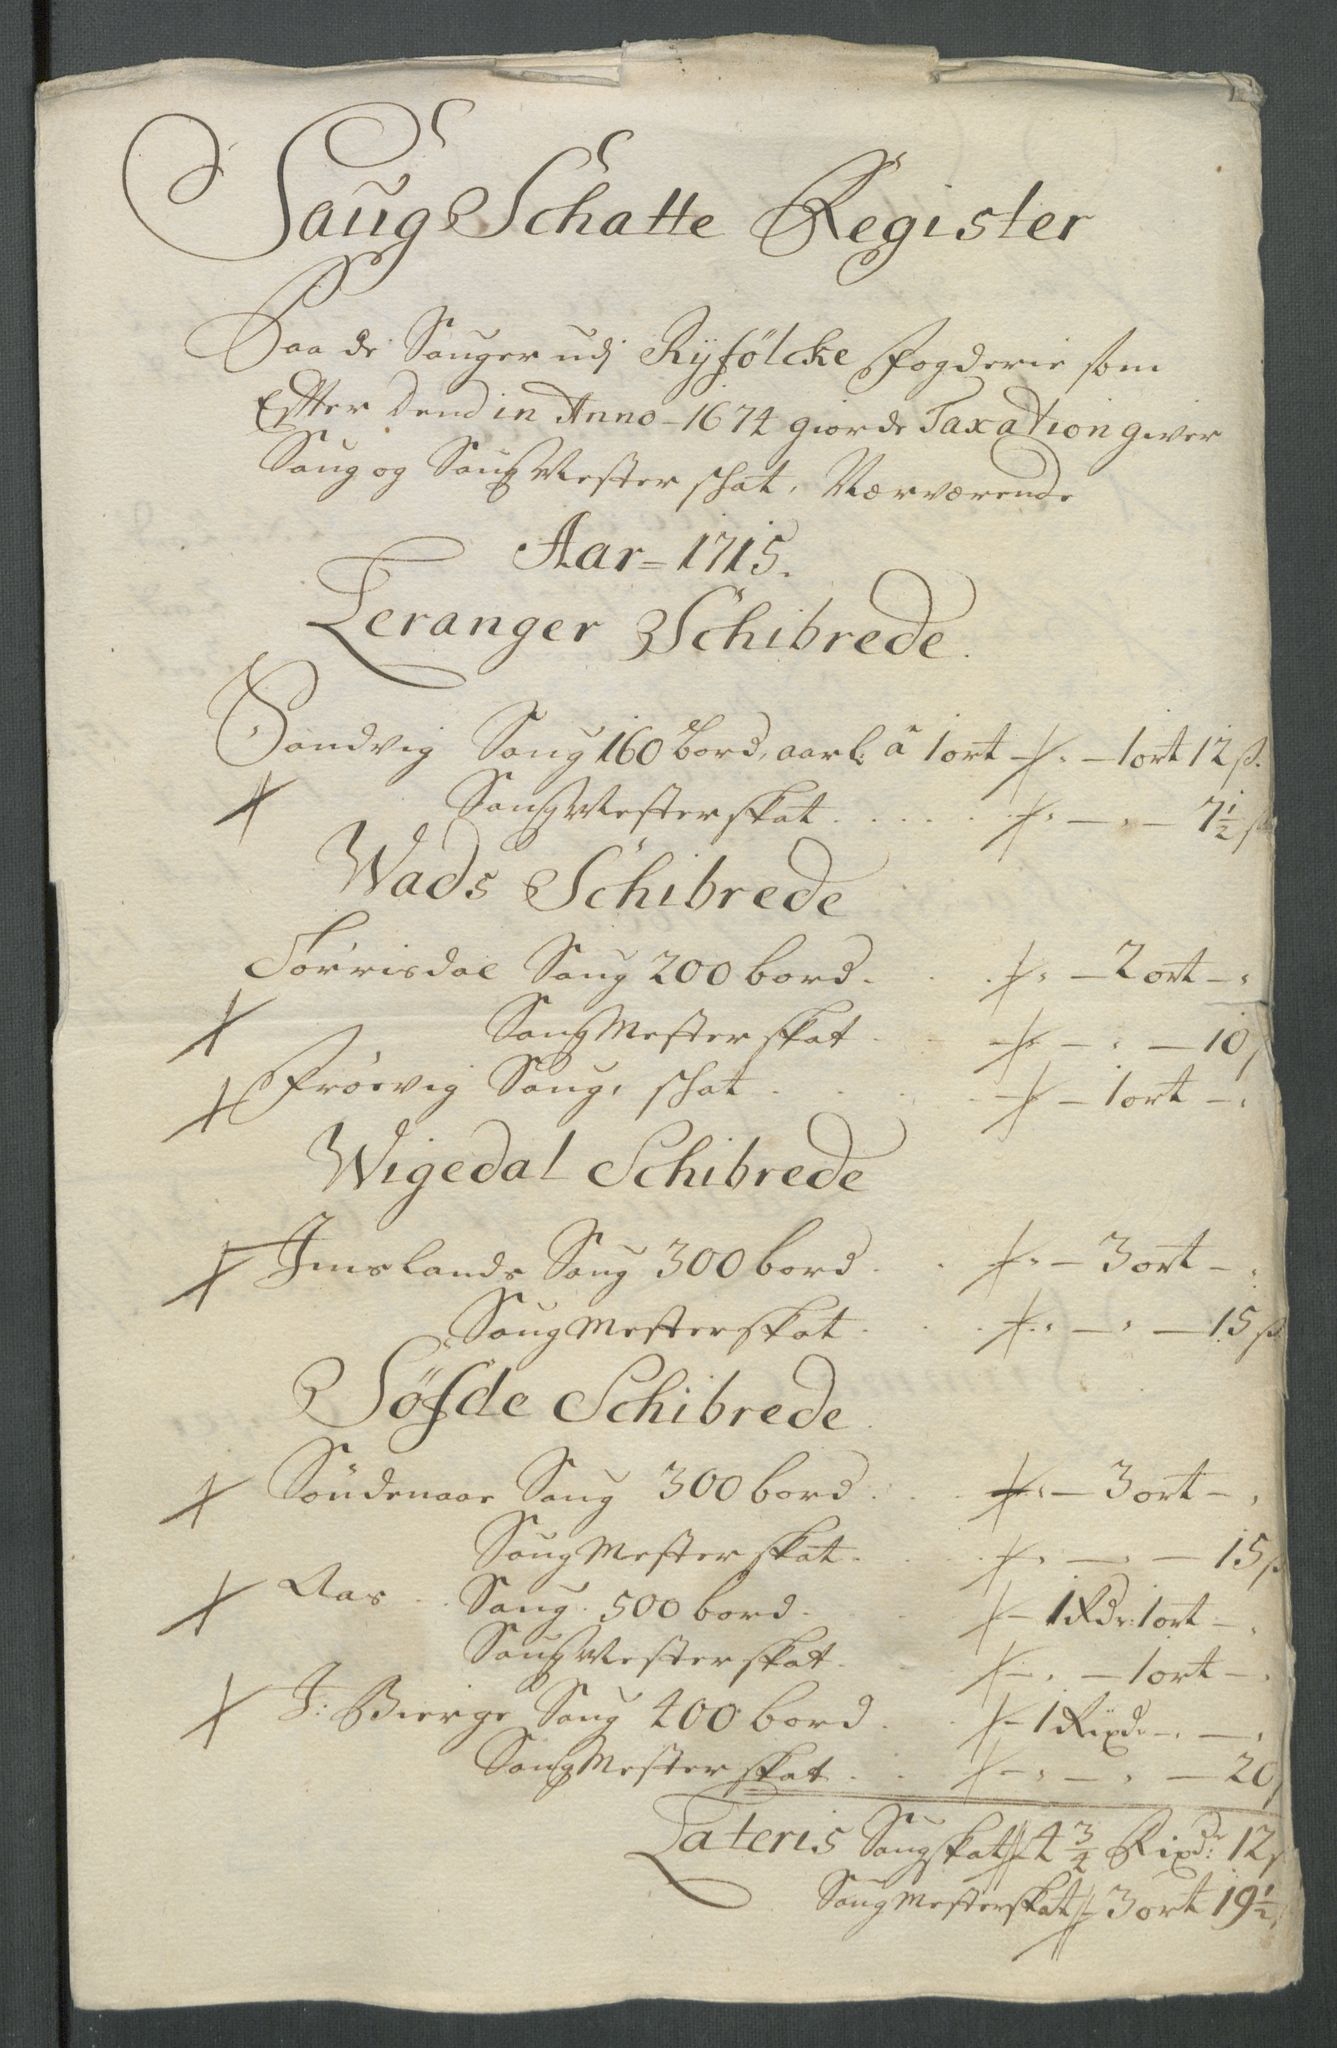 Saug Schatte Register
Paa de Sauger udj Ryfölcke fogderie som
Effter dend in Anno - 1674 giorde Taxation giver
Saug og SaugMester schat, Nærværende
Aar = 1715.
Jeranger Schibrede.
Sandvig Saug 160 bord, aarl: a 1 ort - 1 ort 12 ß.
SaugMester skat - 7½ ß
Wads Schibrede
Torrisdal Saug 200 bord. - 2 ort -
SaugMester skat - 10 ß
Frøevig Saug, schat - 1 ort -
Wigedal Schibrede
Imslands Saug 300 bord - 3 ort -
SaugMester skat - 15 ß
Söfde Schibrede
Söndenaae Saug 300 bord - 3 ort -
SaugMester skat - 15 ß
Aas Saug 500 bord - 1 Rdr: 1 ort -
SaugMester skat - 1 ort -
J: Bierge Saug 400 bord - 1 Rixdr -
SaugMester skat - 20 ß
Lateris Saugskat 4¾ Rixdr: 12 ß
SaugMesterskat 3 ort 19½ ß